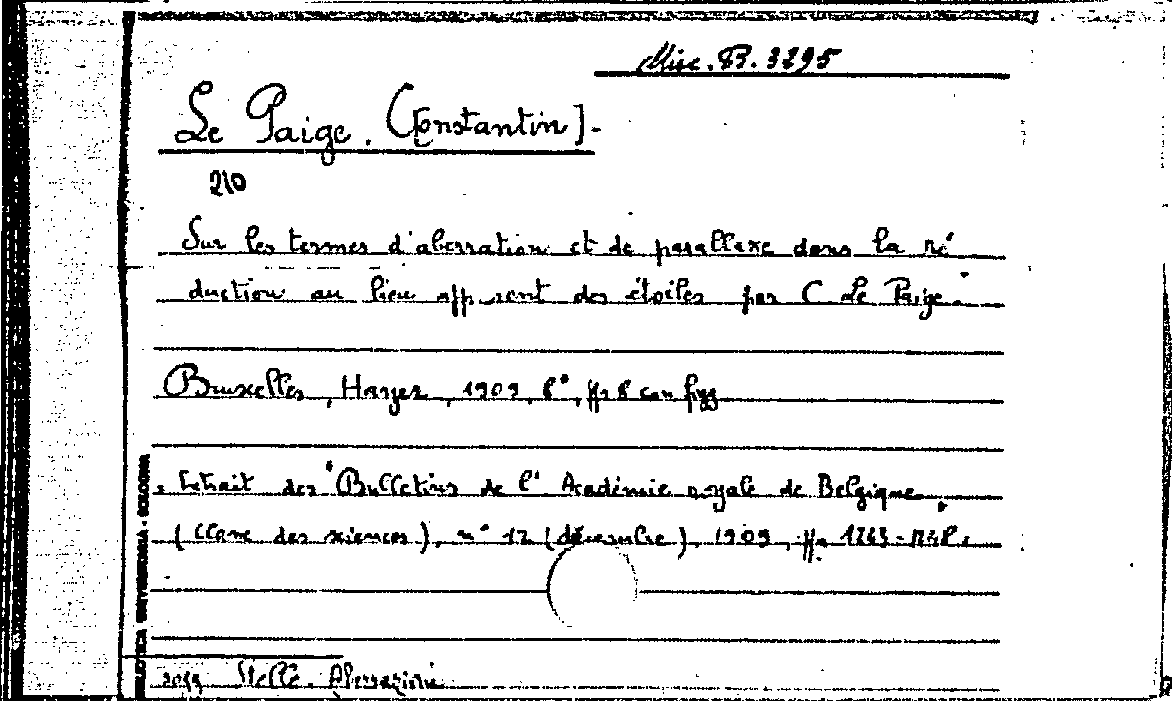 Misc. B. 3295
Le Paige, C[onstantin].
210
Sur les termes d'aberration et de parallaxe dans la ré
duction au lieu apparent des étoiles par C Le Paige.
Bruxelles, Hayez, 1909, 8°, pp 8 con figg
Extrait des "Bulletins de l'Académie royale de Belgique
(Classe des sciences), n° 12 (décembre), 1909, pp.
BIBLIOTECA UNIVERSITARIA - BOLOGNA
Stelle. Aberrazioni